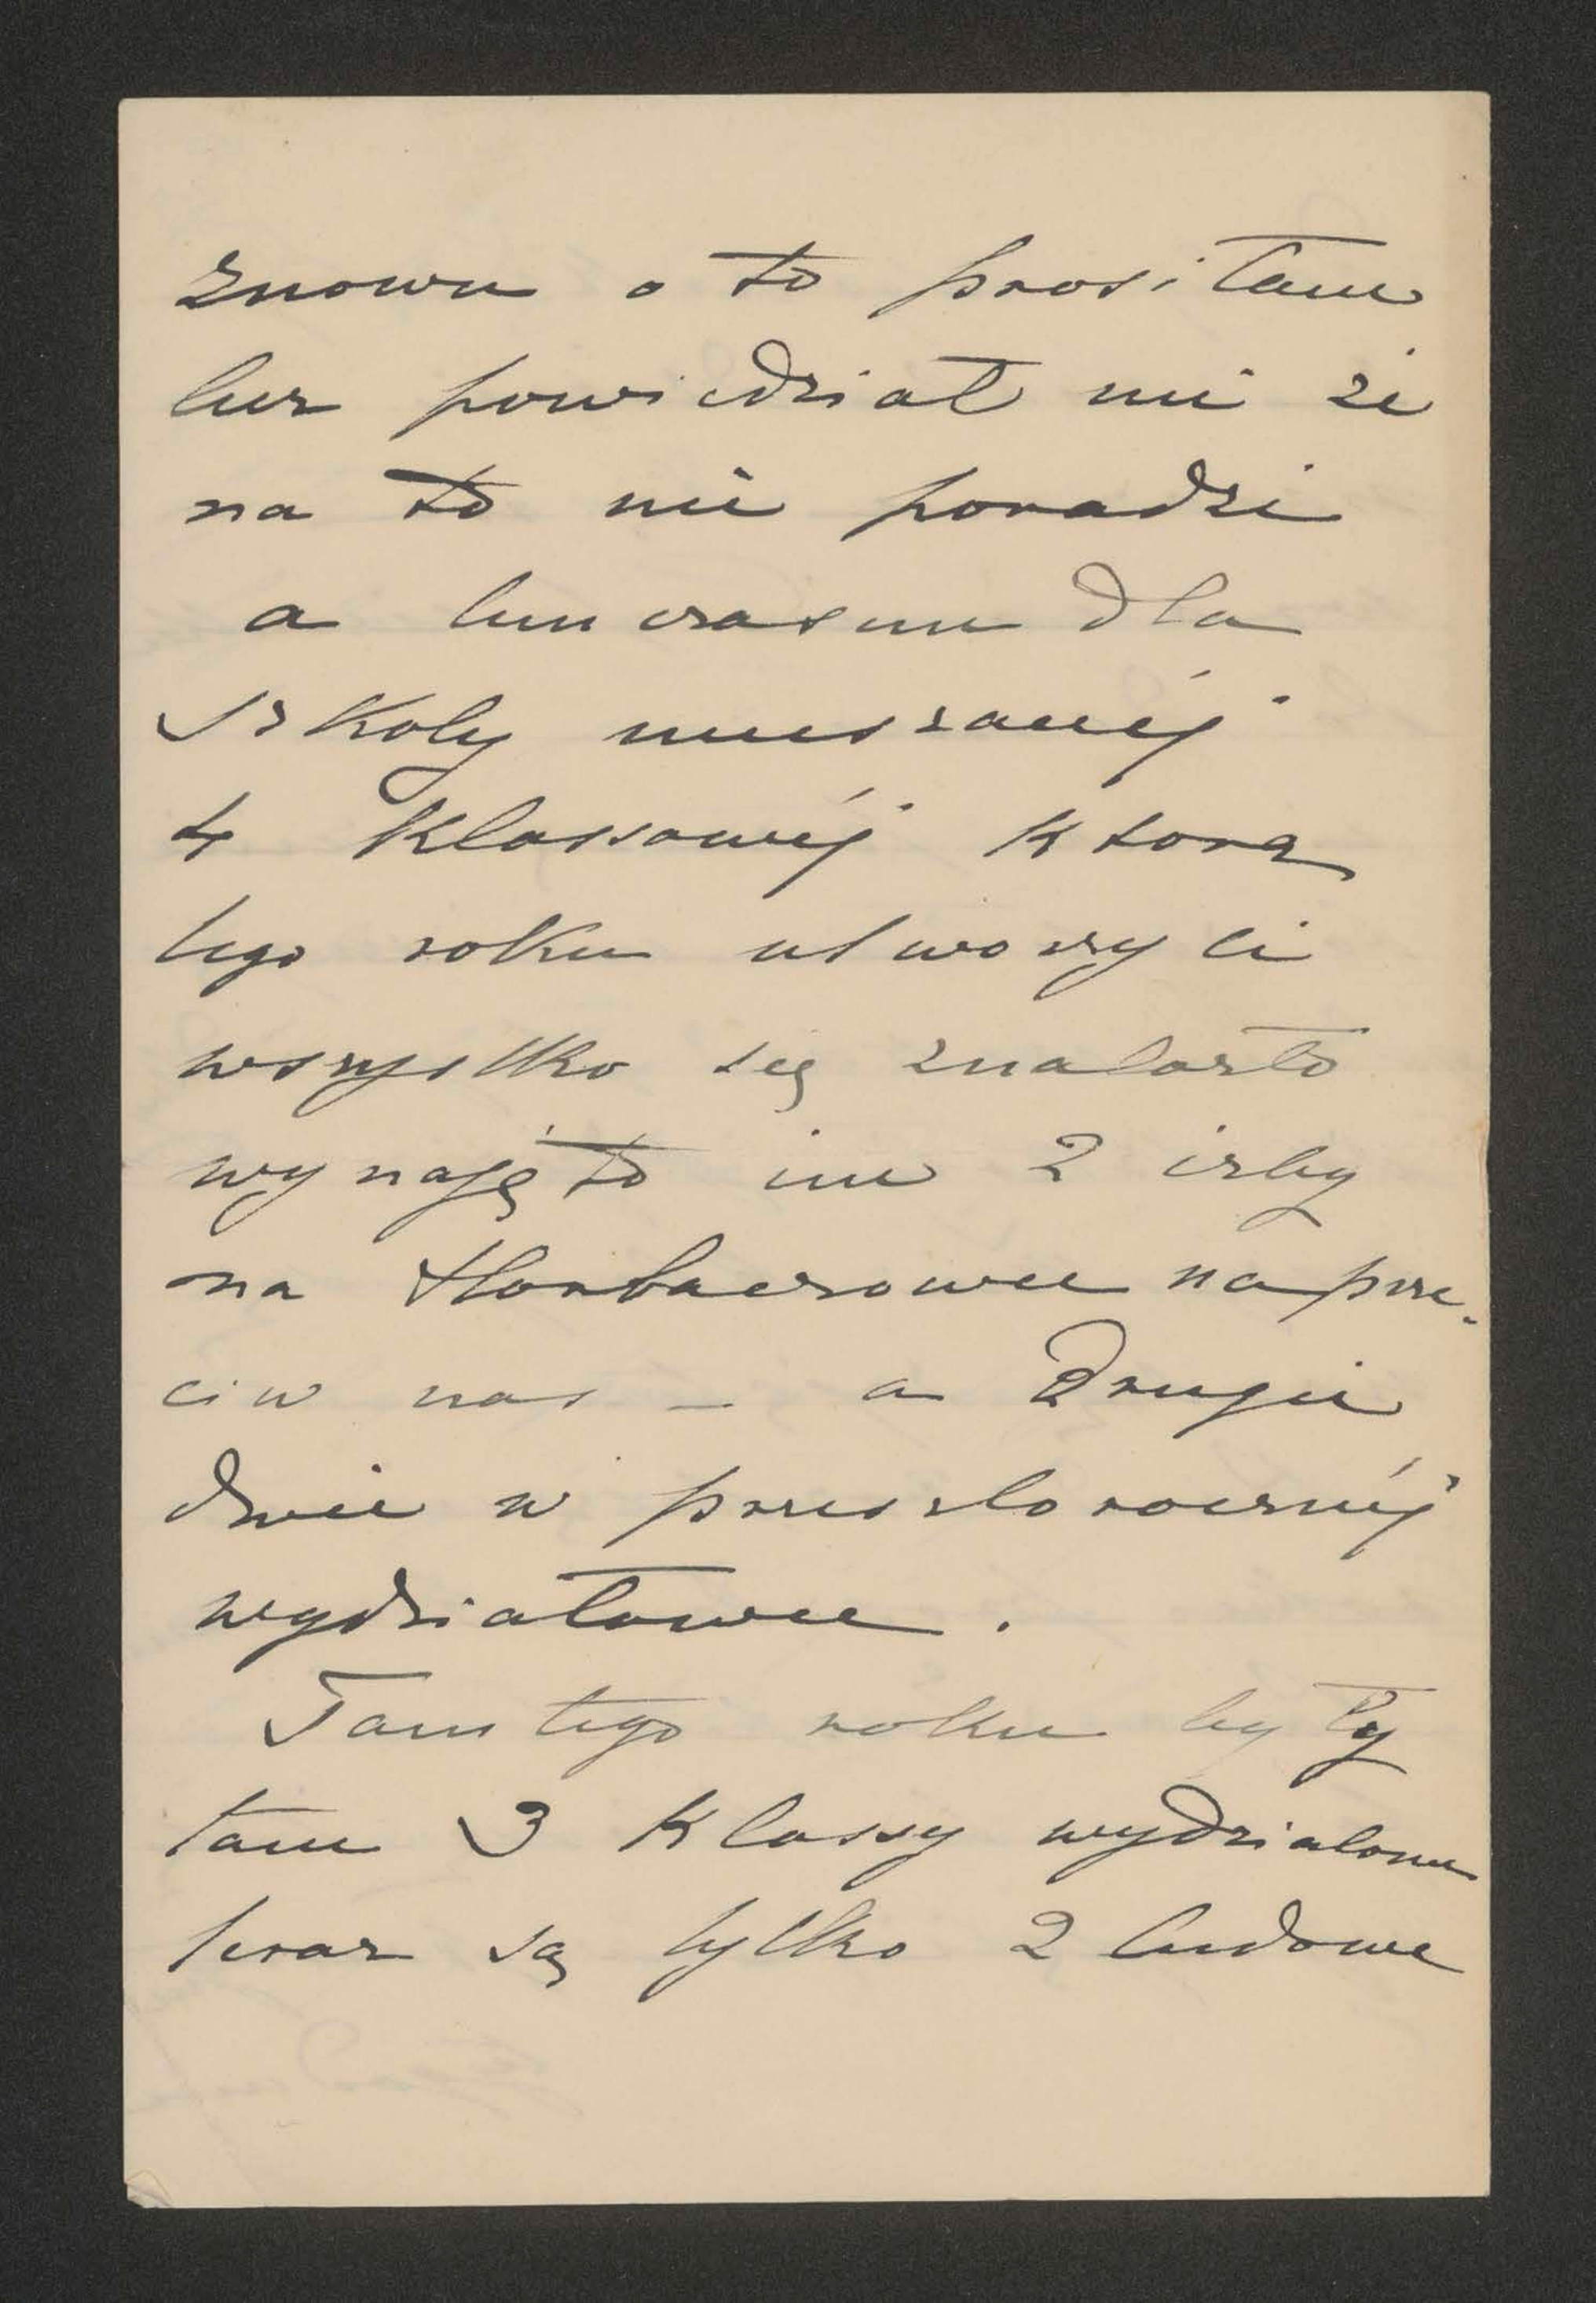 znowu o to prosiłam
lecz powiedział mi że
na to nie poradzi
a tymczasem dla
szkoły mieszanéj
4 klassowéj ktorą
tego roku utworzyli
wszystko się znalazło
wynajęto im 2 izby
na Horbaczowce naprze-
ciw nas – a drugie
dwie w przeszłorocznéj
wydziałowce.
Tamtego roku były
tam 3 klassy wydziałowe
teraz są tylko 2 ludowe